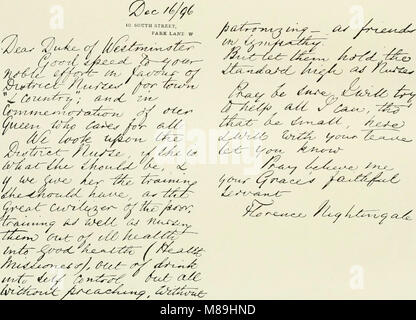 Dec 16/96
10 SOUTH STREET,
PARK LANE W
Dear Duke of Westminster
Good speed to your
noble effort in favour of
District Nurses for town
& country; and in
Commemoration of our
Queen who cares for all.
We look upon the
District Nurse, if she is
what she should be, &
if we give her the training
she should have, as the
great civilizer of the poor,
training as well as nursing
them out of ill health
into good health (Health
Missioners), out of drink
into self control but all
without preaching, without
patronizing — as friends
in sympathy.
But let them hold the
Standard high as Nurses
Pray be sure I will try
to help all I can, tho'
that be small, here
I will with your leave
let you know
Pray believe me
your Grace's faithful
Servant
Florence Nightingale
alamy
M89HND